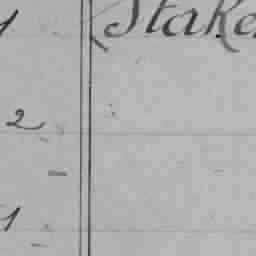 1 Stake
2
1